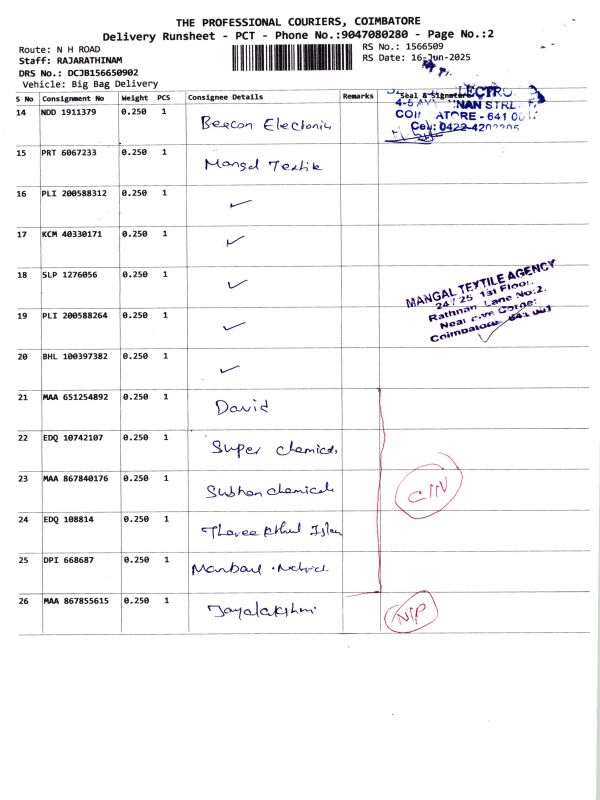 THE PROFESSIONAL COURIERS, COIMBATORE
Delivery Runsheet - PCT - Phone No.:9047080280 - Page No.:2
Route: N H ROAD
RS No.: 1566509
Staff: RAJARATHINAM
RS Date: 16-Jun-2025
DRS No.: DCJB156650902
Vehicle: Big Bag Delivery
S No Consignment No Weight PCS Consignee Details Remarks Seal & Signature
14 NDD 1911379 0.250 1 Beecon Electonic
COIMBATORE - 641 001
Cell: 0422-4202205
15 PRT 6067233 0.250 1 Mangal Textile
16 PLI 200588312 0.250 1 ✓
17 KCM 40330171 0.250 1 ✓
18 SLP 1276056 0.250 1 ✓
MANGAL TEXTILE AGENCY
24 / 25, 1st Floor,
Rathnan Lane No:2,
Coimbatore - 641 001
19 PLI 200588264 0.250 1 ✓
20 BHL 100397382 0.250 1 ✓
21 MAA 651254892 0.250 1 David
22 EDQ 10742107 0.250 1 Super chemical
23 MAA 867840176 0.250 1 Subhan chemicals
24 EDQ 108814 0.250 1
25 DPI 668687 0.250 1
26 MAA 867855615 0.250 1 Jayalakshmi
N/P